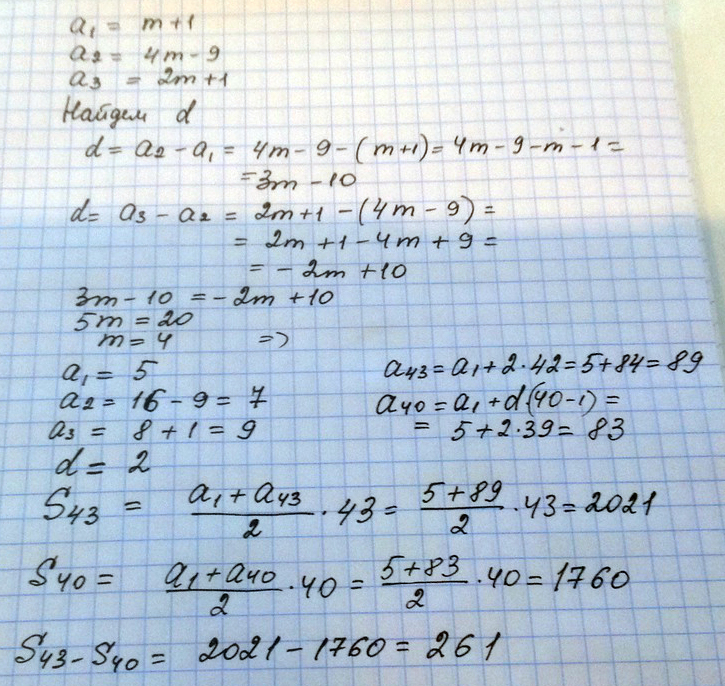 a₁ = m+1
a₂ = 4m-9
a₃ = 2m+1
Найдем d
d = a₂ - a₁ = 4m-9-(m+1) = 4m-9-m-1 =
=3m-10
d = a₃ - a₂ = 2m+1-(4m-9) =
= 2m+1-4m+9 =
= -2m+10
3m-10 = -2m+10
5m = 20
m = 4 =>
a₁ = 5
a₂ = 16-9 = 7
a₃ = 8+1 = 9
d = 2
a₄₃ = a₁+2·42 = 5+84 = 89
a₄₀ = a₁+d(40-1) =
= 5+2·39 = 83
S₄₃ = (a₁+a₄₃)/2 · 43 = (5+89)/2 · 43 = 2021
S₄₀ = (a₁+a₄₀)/2 · 40 = (5+83)/2 · 40 = 1760
S₄₃-S₄₀ = 2021-1760 = 261